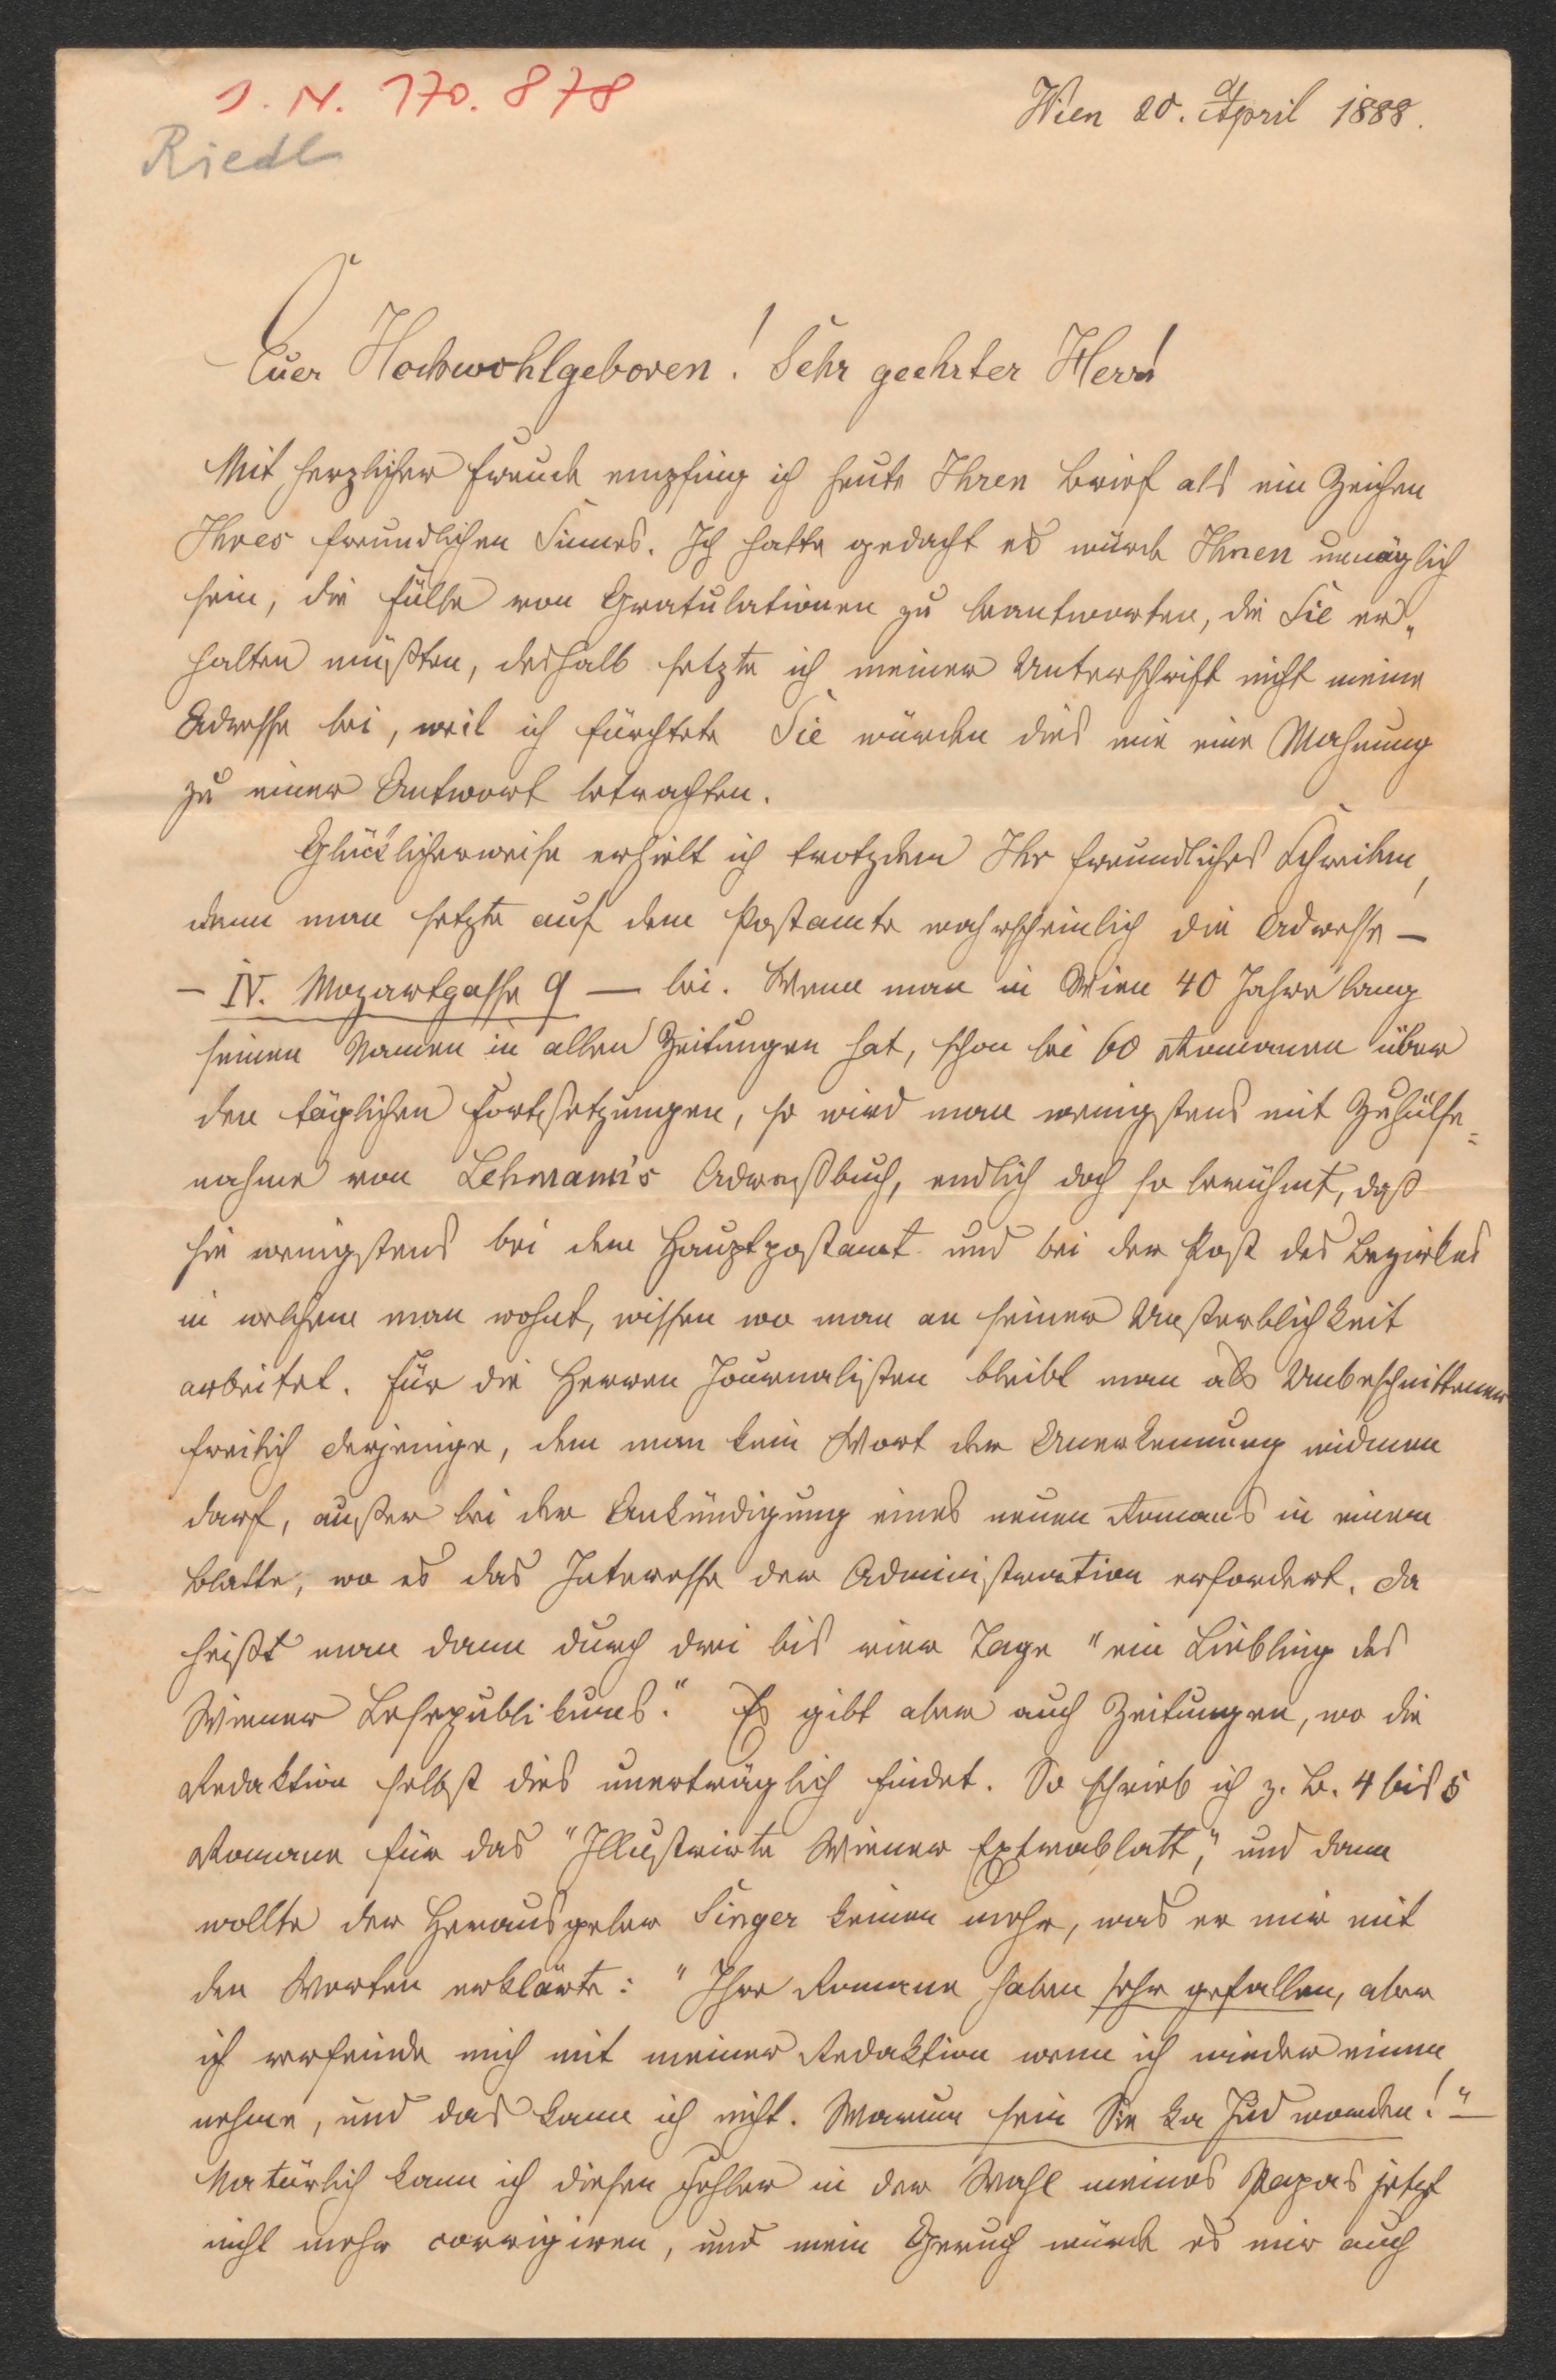 I. N. 170.878
Riedl
Wien 20. April 1888.
Euer Hochwohlgeboren! Sehr geehrter Herr!
Mit herzlicher Freude empfing ich heute Ihren Brief als ein Zeichen
Ihres freundlichen Sinnes. Ich hatte gedacht es würde Ihnen unmöglich
sein, die Fülle von Gratulationen zu beantworten, die Sie er„
halten müßten, deshalb setzte ich meiner Unterschrift nicht meine
Adresse bei, weil ich fürchtete Sie würden dies wie eine Mahnung
zu einer Antwort betrachten.
Glücklicherweise erhielt ich trotzdem Ihr freundliches Schreiben,
denn man setzte auf dem Postamte wahrscheinlich die Adresse —
— IV. Mozartgasse 9 — bei. Wenn man in Wien 40 Jahre lang
seinen Namen in allen Zeitungen hat, schon bei 60 Romanen über
den täglichen Fortsetzungen, so wird man wenigstens mit Zuhülfe=
nahme von Lehmann's Adreßbuch, endlich doch so berühmt, daß
sie wenigstens bei dem Hauptpostamt und bei der Post des Bezirkes
in welchem man wohnt, wissen wo man an seiner Unsterblichkeit
arbeitet. Für die Herren Journalisten bleibt man als Unbeschnittener
freilich derjenige, dem man kein Wort der Anerkennung widmen
darf, außer bei der Ankündigung eines neuen Romans in einem
Blatte, wo es das Interesse der Administration erfordert. Da
heißt man dann durch drei bis vier Tage "ein Liebling des
Wiener Lesepublikums." Es gibt aber auch Zeitungen, wo die
Redaktion selbst dies unerträglich findet. So schrieb ich z. B. 4 bis 5
Romane für das "Illustrirte Wiener Extrablatt," und dann
wollte der Herausgeber Singer keinen mehr, was er mir mit
den Worten erklärte: "Ihre Romane haben sehr gefallen, aber
ich verfeinde mich mit meiner Redaktion wenn ich wieder einen
nehme, und das kann ich nicht. Warum sein Sie ka Jud worden!" —
Natürlich kann ich diesen Fehler in der Wahl meines Papas jetzt
nicht mehr corrigiren, und mein Geruch würde es mir auch